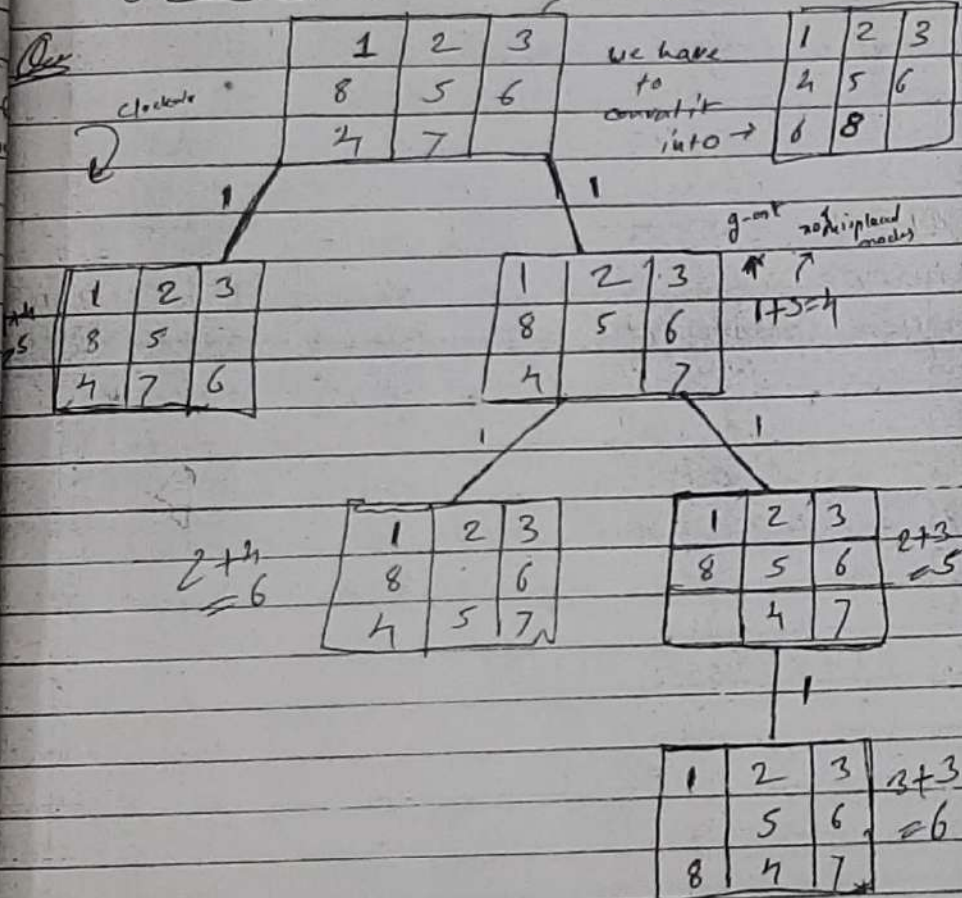 Ques
1 2 3
8 5 6
4 7
we have
to
convert it
into →
1 2 3
4 5 6
6 8
clockwise
1
1
g-cost
no. of displaced
nodes
1+3=4
1 2 3
8 5
4 7 6
1 2 3
8 5 6
4 7
1
1
2+4
=6
1 2 3
8 6
4 5 7
1 2 3
8 5 6
4 7
2+3
=5
1
1 2 3
5 6
8 4 7
3+3
=6